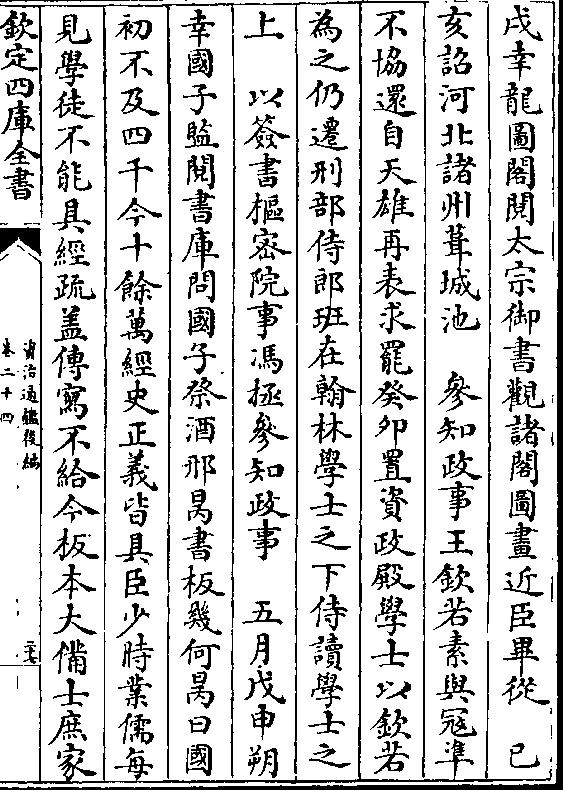 戌幸龍圖閣閱太宗御書觀諸閣圖畫近臣畢從　已
亥詔河北諸州葺城池　參知政事王欽若素與冦凖
不協還自天雄再表求罷癸卯置資政殿學士以欽若
為之仍遷刑部侍郎班在翰林學士之下侍讀學士之
上　以簽書樞密院事馮拯參知政事　五月戊申朔
幸國子監閱書庫問國子祭酒邢昺書板幾何昺曰國
初不及四千今十餘萬經史正義皆具臣少時業儒每
見學徒不能具經疏盖傳寫不給今板本大備士庶家
欽定四庫全書
資治通鑑後編
卷二十四